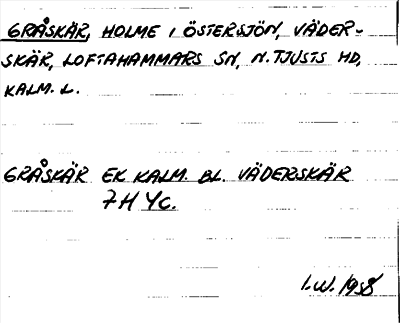 GRÅSKÄR, HOLME I ÖSTERSJÖN, VÄDER-
SKÄR, LOFTAHAMMARS SN, N. TJUSTS HD,
KALM. L.
GRÅSKÄR EK KALM. BL. VÄDERSKÄR
7H 4c.
I.W. 1958